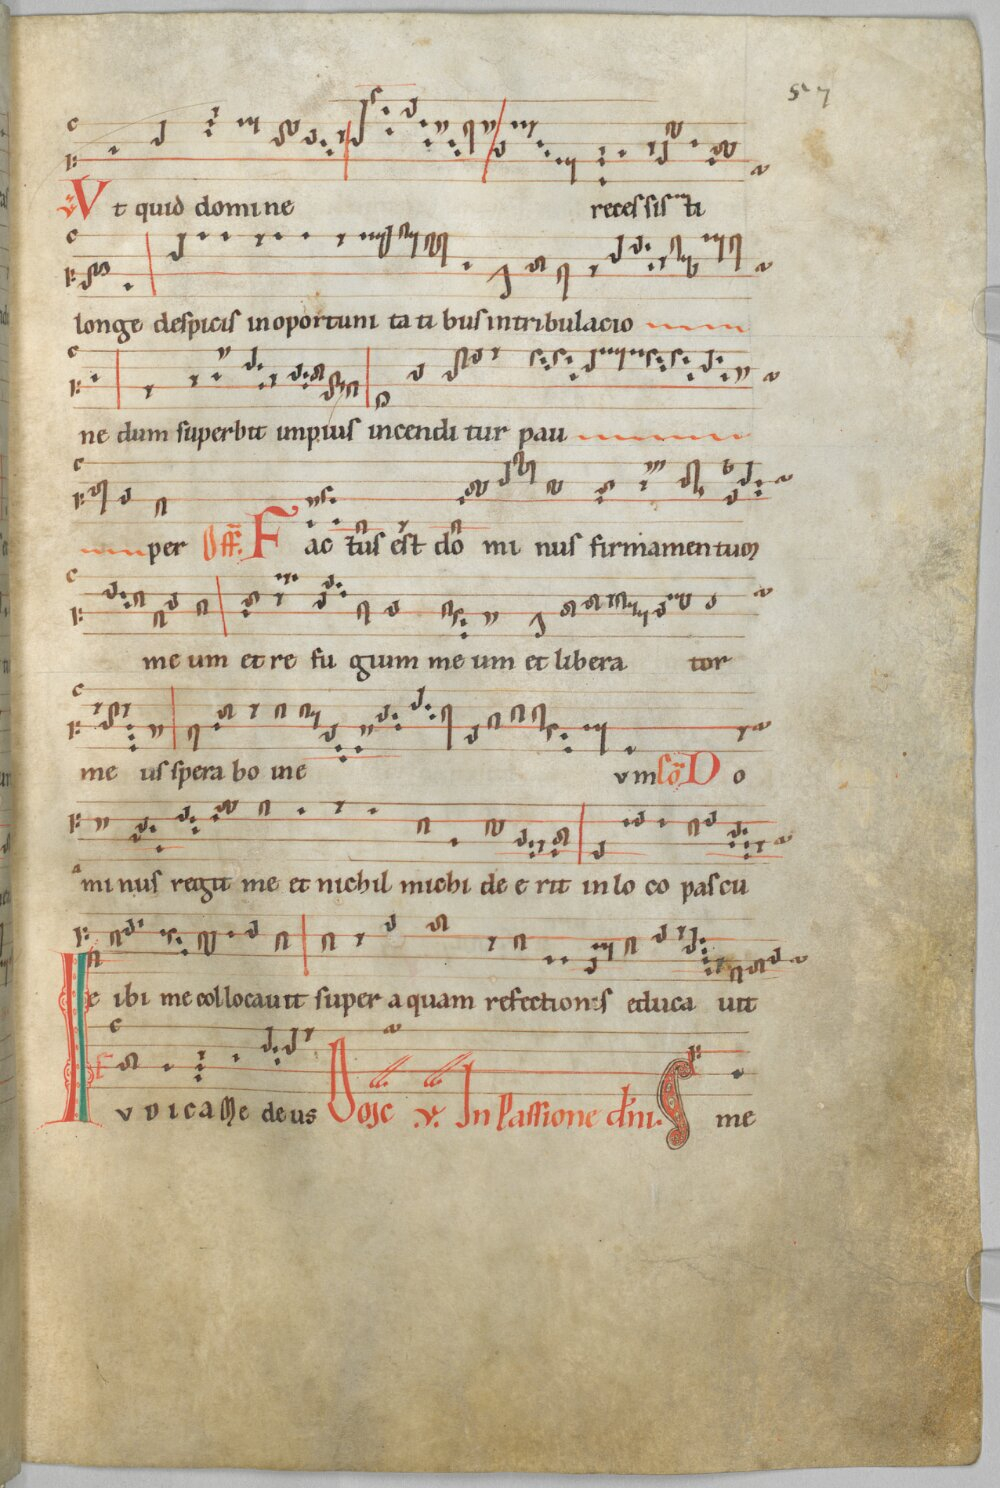 57
℣ Vt quid domine recessisti
longe despicis inoportunitatibus in tribulacio
ne dum superbit impius incenditur pau
per Off. Factus est dominus firmamentum
meum et refugium meum et liberator
meus spera bo in eum Cō Do
minus regit me et nichil michi deerit in loco pascu
e ibi me collocauit super aquam refectionis educauit
Iudica me deus Dosc ℣. In Passione dni. S me